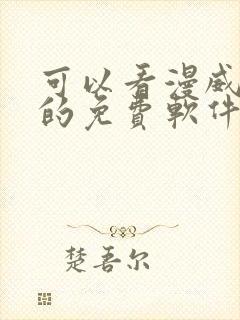 可以看漫威
的免費軟件
楚吾尔